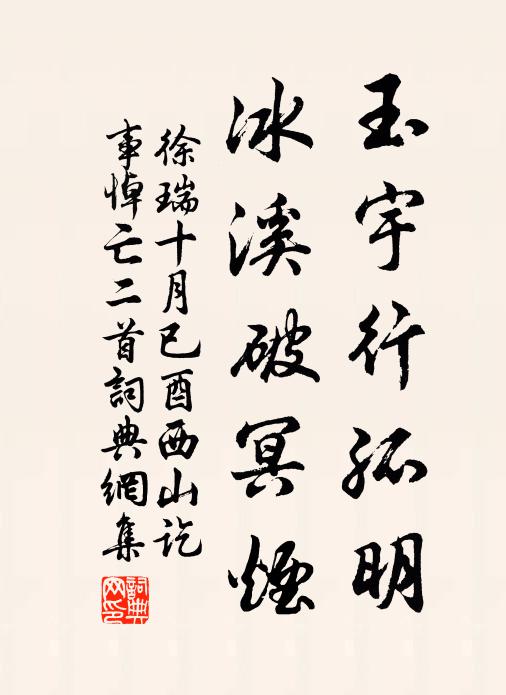 玉宇行孤明
冰溪破冥煙
徐瑞十月已酉西山訖
事悼亡二首詞典網集
詞典
网印